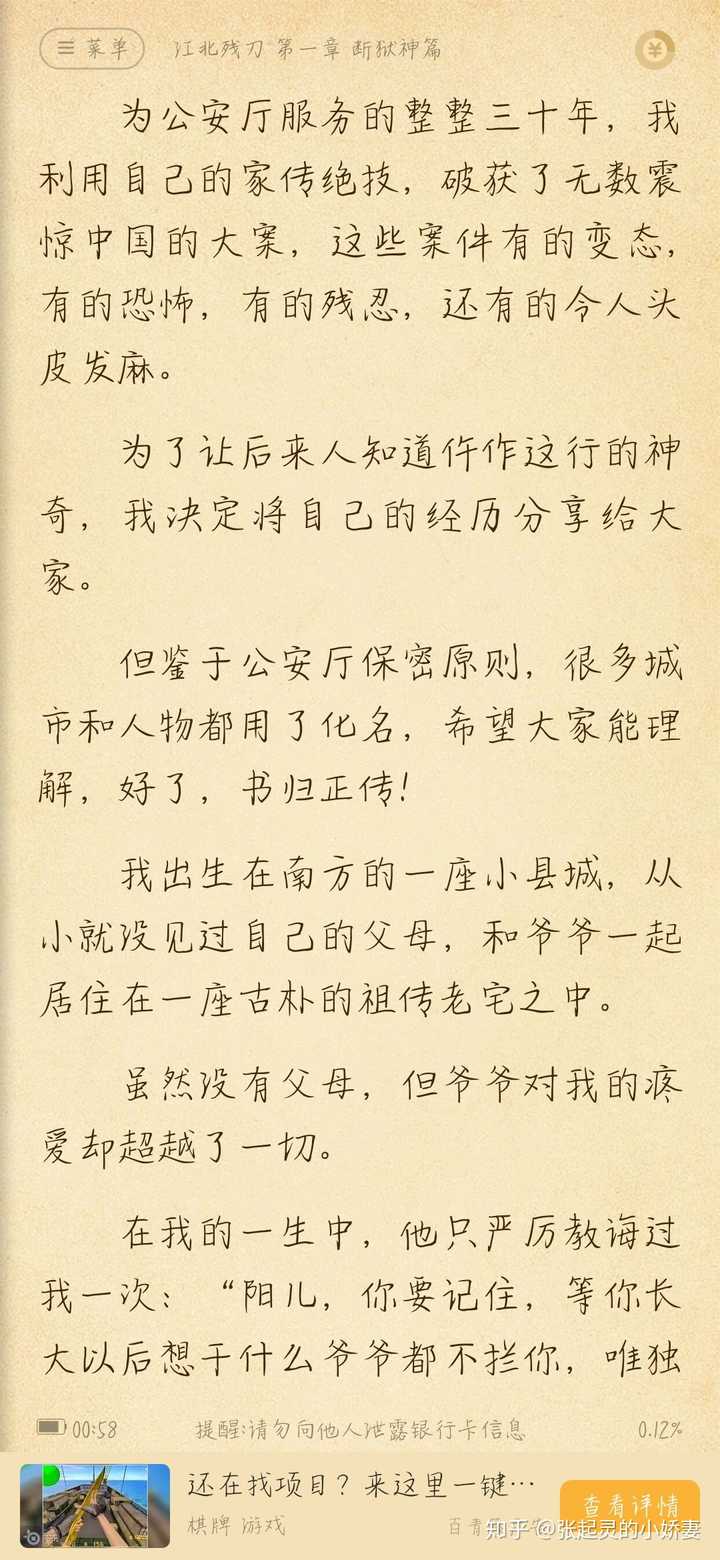 菜单 江北残刀 第一章 断狱神篇
为公安厅服务的整整三十年，我
利用自己的家传绝技，破获了无数震
惊中国的大案，这些案件有的变态，
有的恐怖，有的残忍，还有的令人头
皮发麻。
为了让后来人知道仵作这行的神
奇，我决定将自己的经历分享给大
家。
但鉴于公安厅保密原则，很多城
市和人物都用了化名，希望大家能理
解，好了，书归正传！
我出生在南方的一座小县城，从
小就没见过自己的父母，和爷爷一起
居住在一座古朴的祖传老宅之中。
虽然没有父母，但爷爷对我的疼
爱却超越了一切。
在我的一生中，他只严厉教诲过
我一次：“阳儿，你要记住，等你长
大以后想干什么爷爷都不拦你，唯独
00:58 提醒:请勿向他人泄露银行卡信息 0.12%
还在找项目？来这里一键…
查看详情
棋牌 游戏 百青
知乎 @张起灵的小娇妻